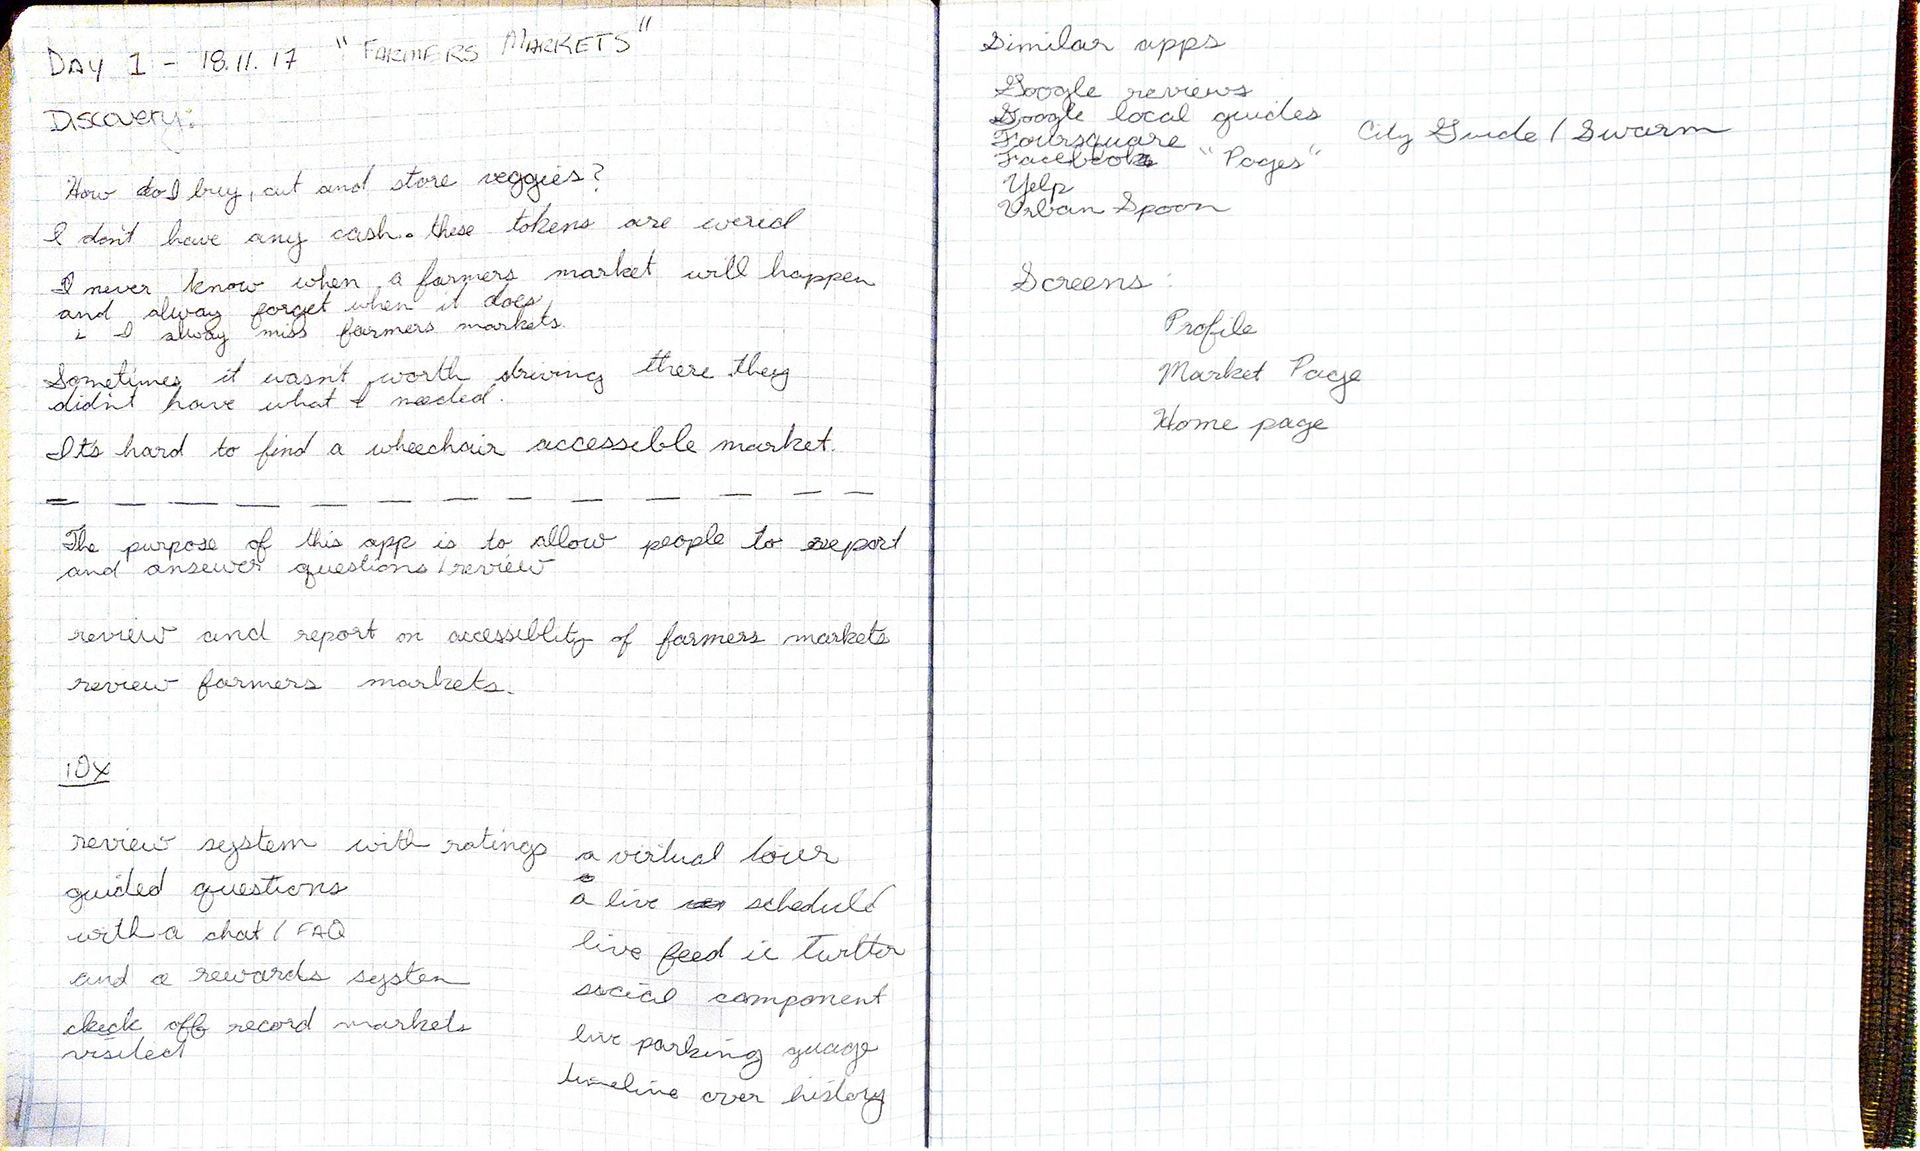 DAY 1 - 18.11.17 "FARMERS MARKETS"
Discovery:
How do I buy, cut and store veggies?
I don't have any cash. these tokens are weried
I never know when a farmers market will happen
and alway forget when it does,
I alway miss farmers markets.
Sometimes it wasn't worth driving there they
didn't have what I needed.
It's hard to find a wheechair accessible market.
The purpose of this app is to allow people to report
and ansewer questions/review
review and report on accessiblity of farmers markets
review farmers markets.
10x
review system with ratings
guided questions
with a chat / FAQ
and a rewards system
check off record markets
visited
a virtual tour
a live schedule
live feed ie Twitter
social component
live parking guage
timeline over history
Similar apps
Google reviews
Google local guides
Foursquare City Guide / Swarm
Facebook "Pages"
Yelp
Urban Spoon
Screens:
Profile
Market Page
Home page